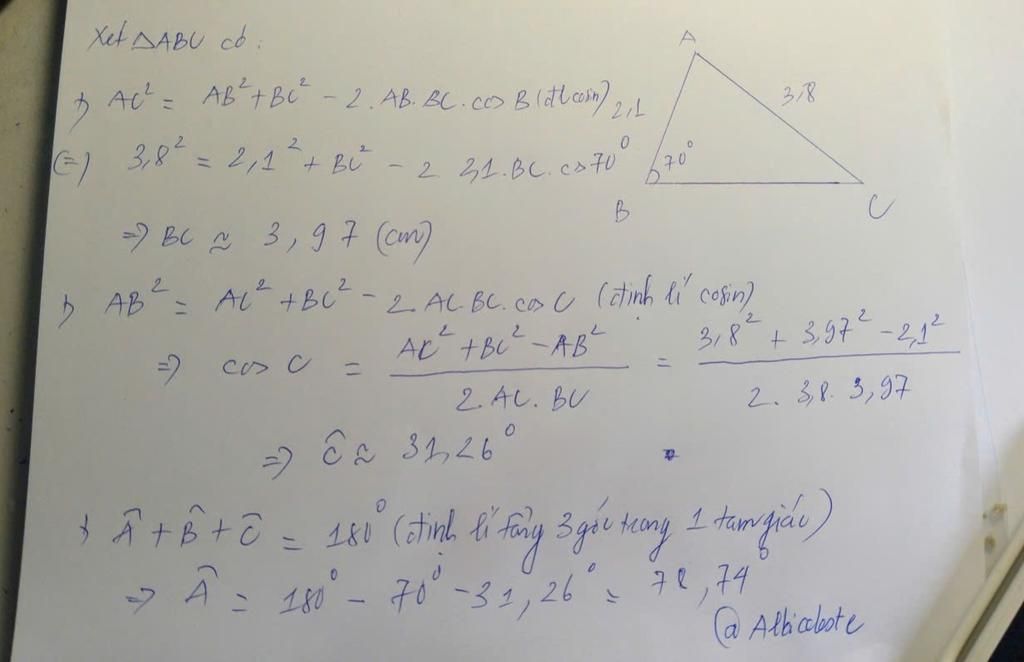 Xét △ABC có:
+) AC² = AB² + BC² - 2.AB.BC.cos B (đl cosin)
(=) 3,8² = 2,1² + BC² - 2 2,1.BC.cos70°
=> BC ≈ 3,97 (cm)
+) AB² = AC² + BC² - 2.AC.BC.cos C (định lí cosin)
=> cos C = (AC² + BC² - AB²)/(2.AC.BC) = (3,8² + 3,97² - 2,1²)/(2.3,8.3,97)
=> Ĉ ≈ 31,26°
+) Â + B̂ + Ĉ = 180° (định lí tổng 3 góc trong 1 tam giác)
=> Â = 180° - 70° - 31,26° = 78,74°
@Albicabote
A
3,8
2,1
70°
B
C